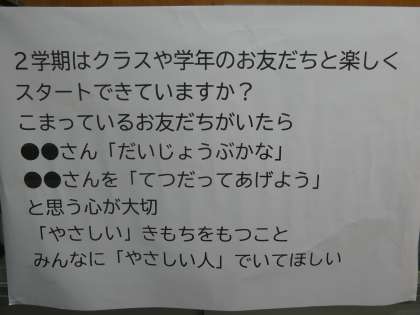 ２学期はクラスや学年のお友だちと楽しく
スタートできていますか？
こまっているお友だちがいたら
●●さん「だいじょうぶかな」
●●さんを「てつだってあげよう」
と思う心が大切
「やさしい」きもちをもつこと
みんなに「やさしい人」でいてほしい